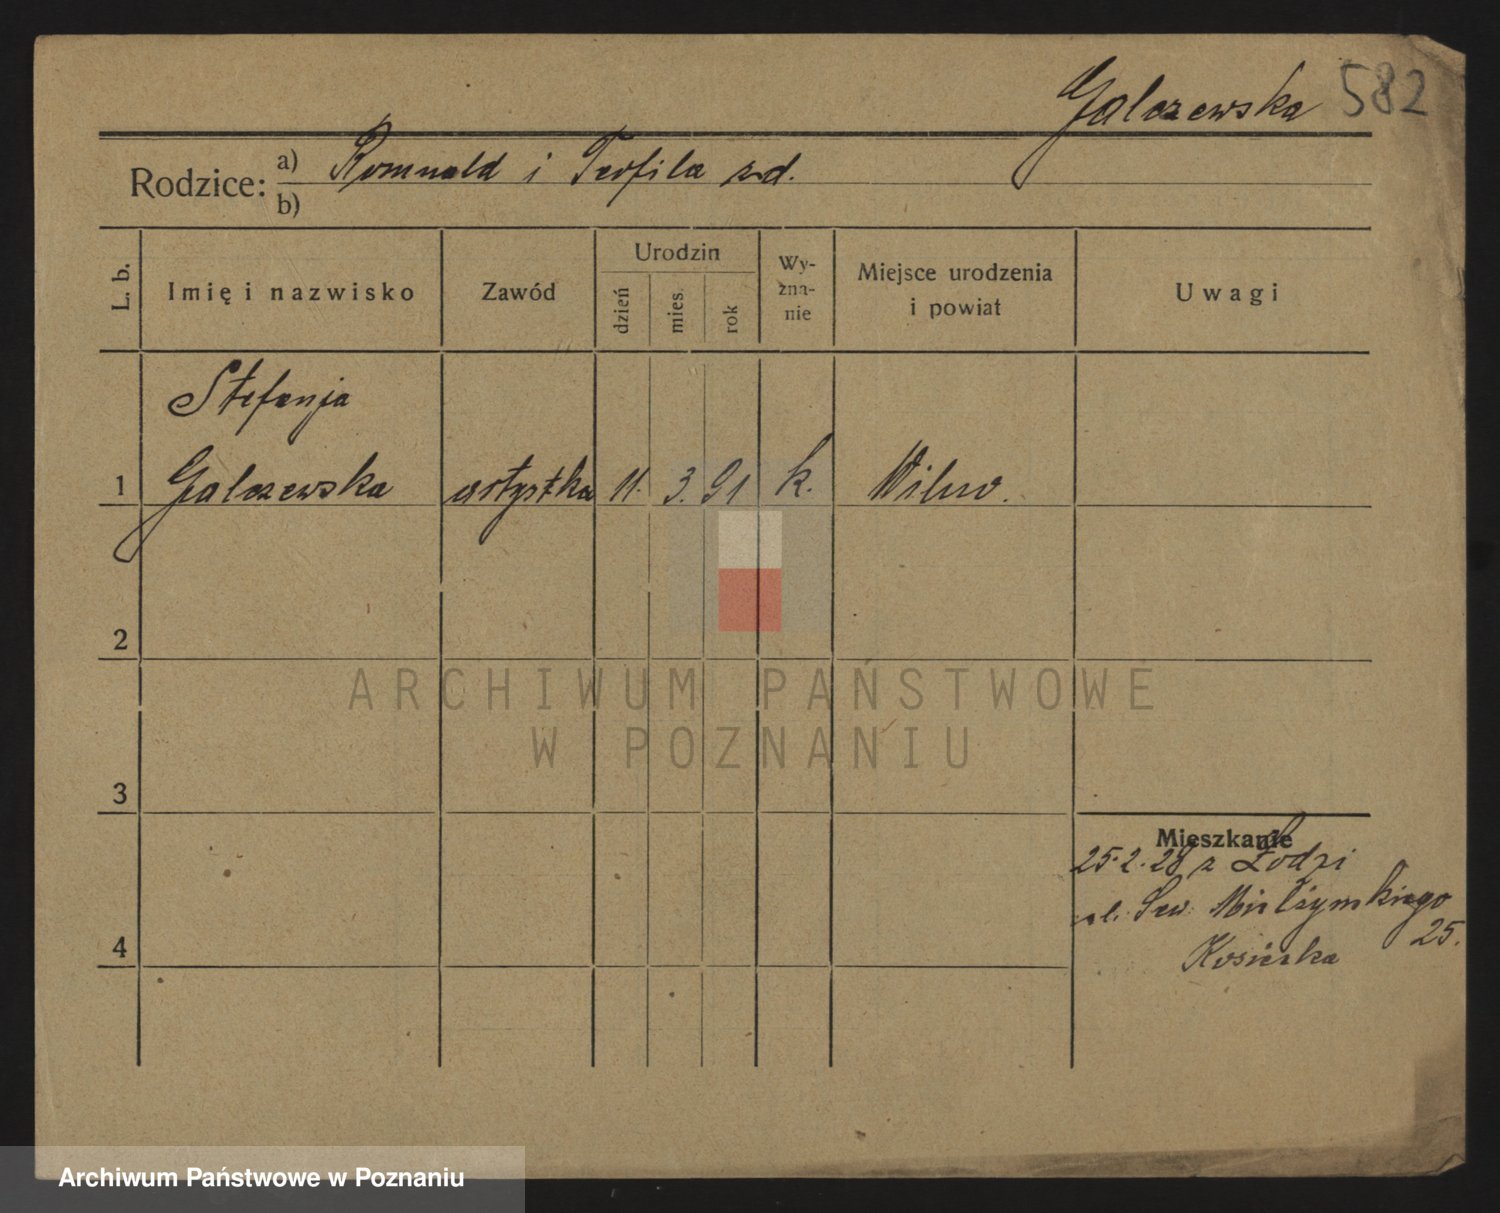 Galczewska 582
Rodzice: a) Romuald i Teofila zd.
b)
L. b.
Imię i nazwisko
Zawód
Urodzin
dzień
mies.
rok
Wy-
zna-
nie
Miejsce urodzenia
i powiat
Uwagi
Stefanja
1 Galczewska artystka 11. 3. 91 k. Wilno.
2
3
4
Mieszkanie
25.2.28 z Łodzi
ul. Sew. Mielżyńskiego
25.
ARCHIWUM PAŃSTWOWE
W POZNANIU
Archiwum Państwowe w Poznaniu